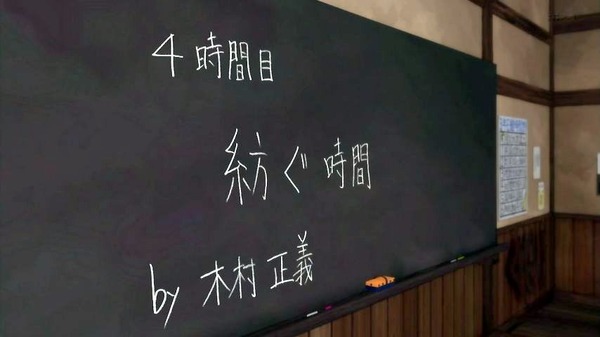 4時間目
紡ぐ時間
by 木村正義